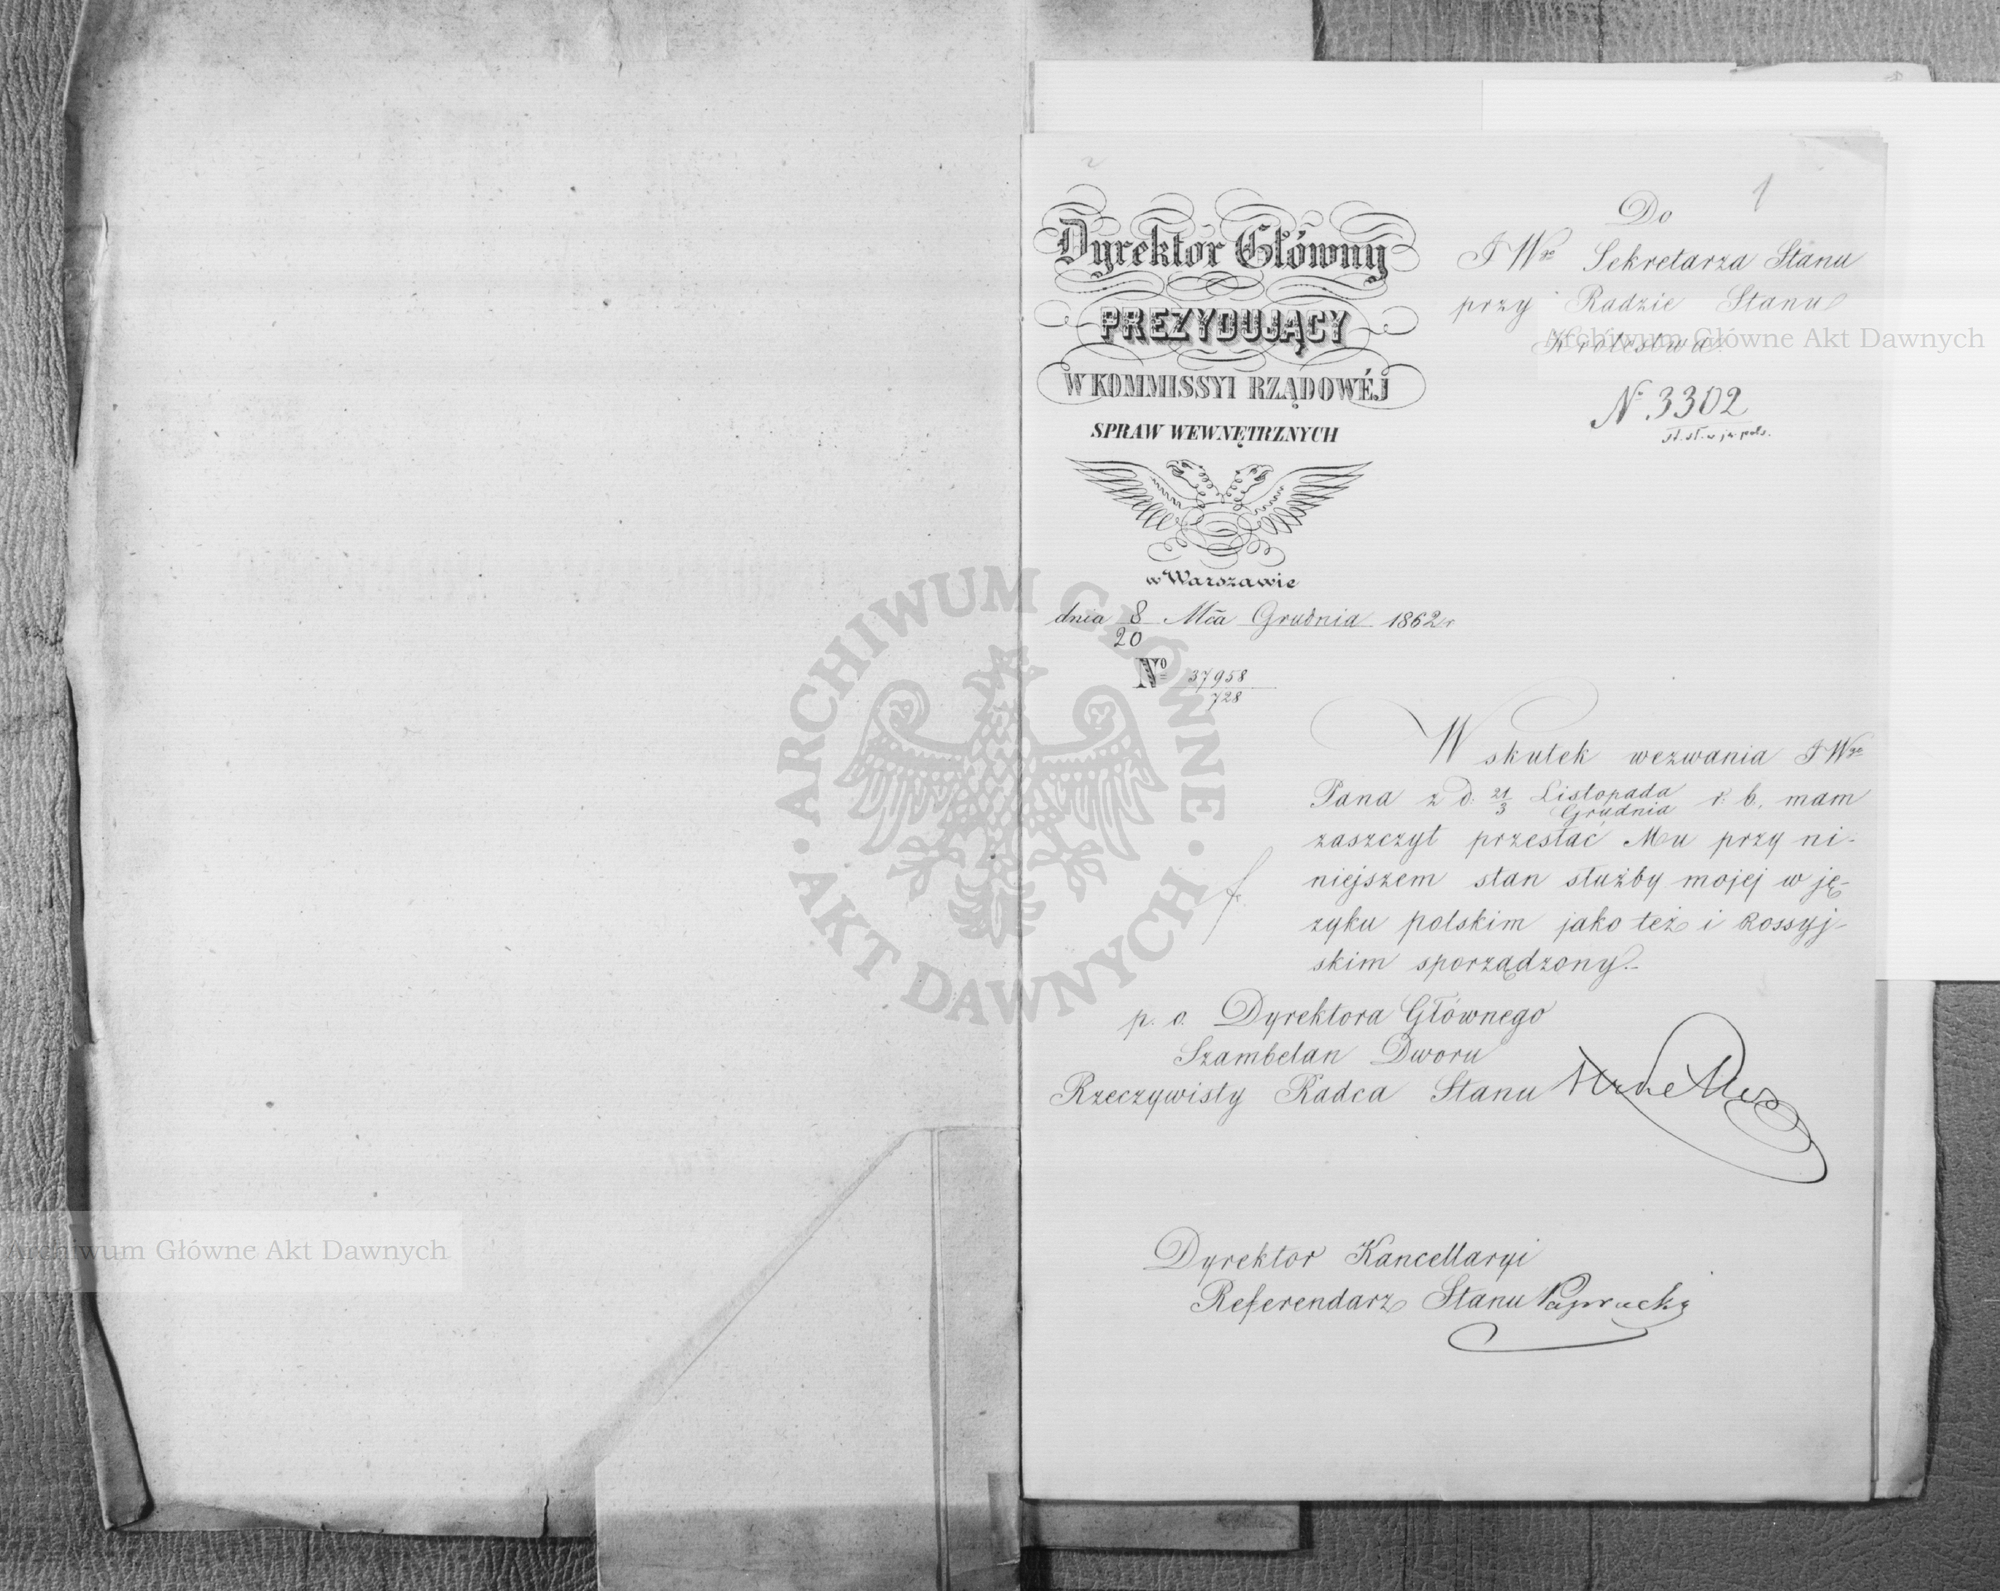 1
Dyrektor Główny
PREZYDUJĄCY
W KOMMISSYI RZĄDOWÉJ
SPRAW WEWNĘTRZNYCH
w Warszawie
dnia 8/20 Mca Grudnia 1862 r
No 37958/728
Do
JWgo Sekretarza Stanu
przy Radzie Stanu
Królestwa.
N. 3302
st. sł. w jęz. pols.
W skutek wezwania JWgo
Pana z d: 21/3 Listopada/Grudnia r. b. mam
zaszczyt przesłać Mu przy ni-
niejszem stan służby mojej w ję-
zyku polskim jako też i Rossyj-
skim sporządzony.-
p. o. Dyrektora Głównego
Szambelan Dworu
Rzeczywisty Radca Stanu
Dyrektor Kancellaryi
Referendarz Stanu Paprocki
ARCHIWUM GŁÓWNE
AKT DAWNYCH
Archiwum Główne Akt Dawnych
Archiwum Główne Akt Dawnych